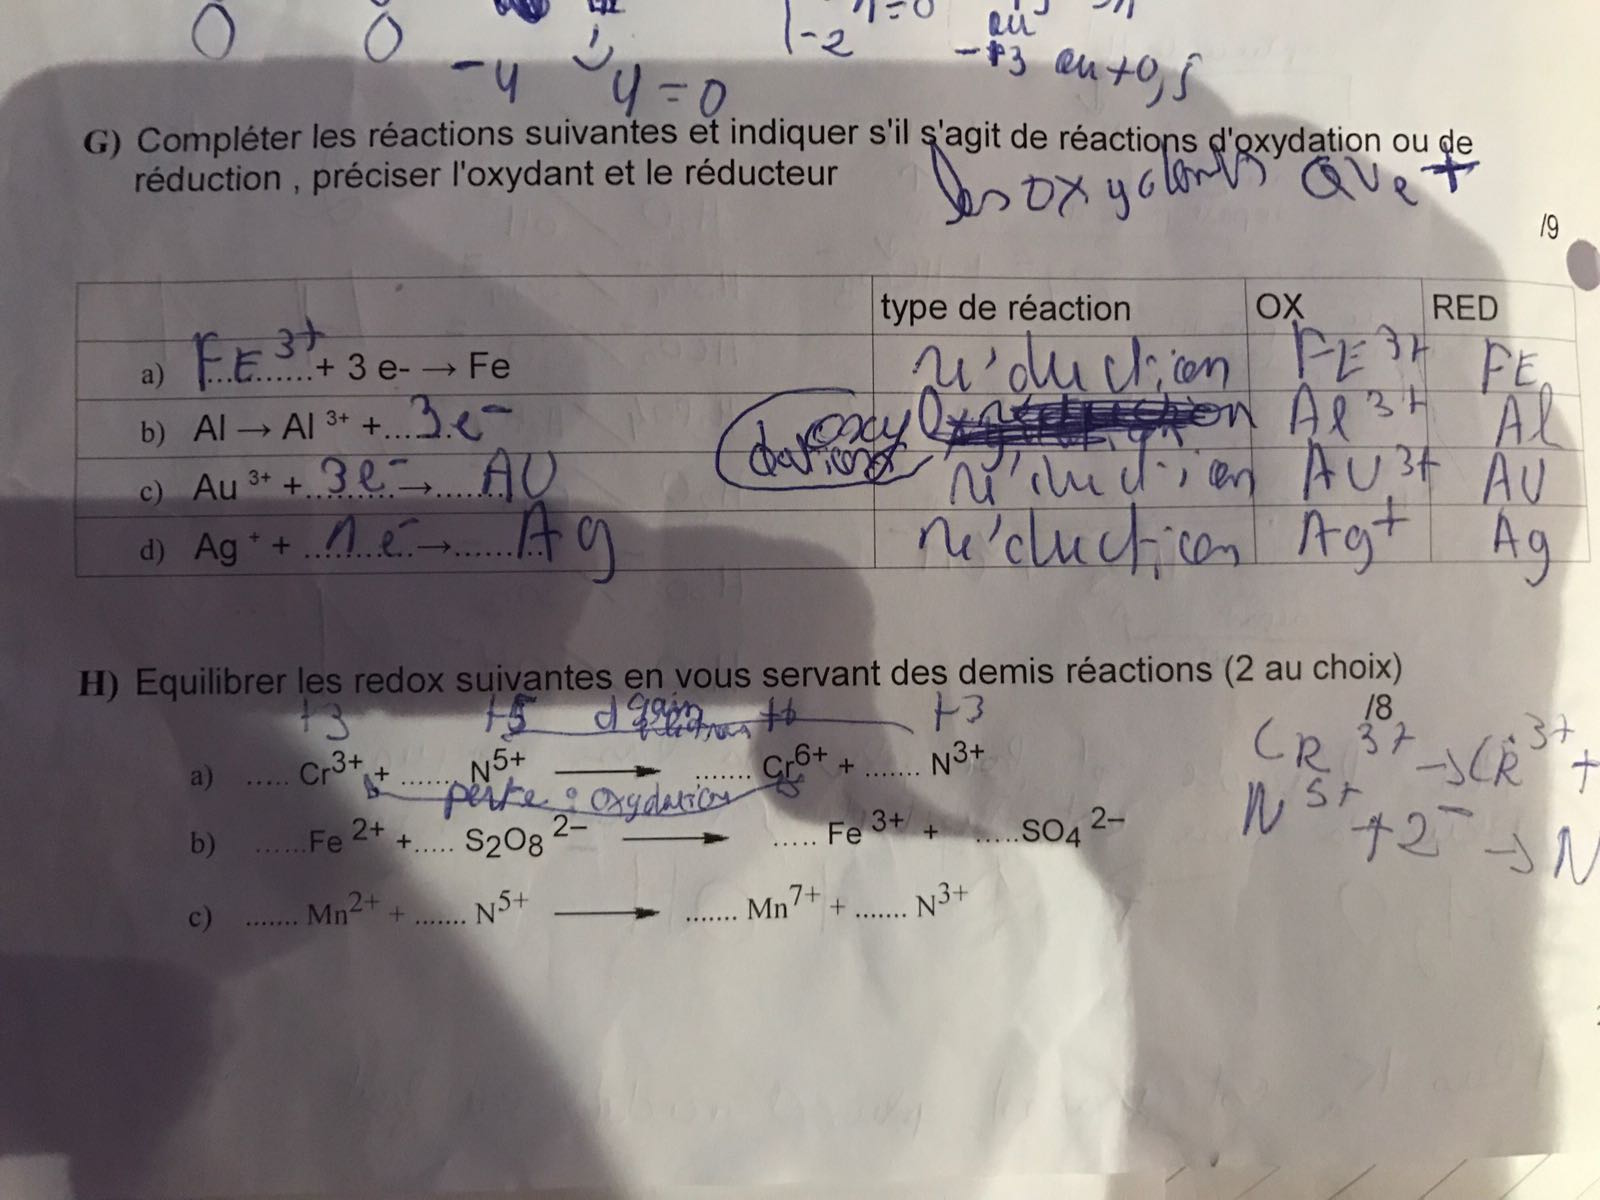 0 0
-4 4=0 -2 =0 au
-3 au +0,5
G) Compléter les réactions suivantes et indiquer s'il s'agit de réactions d'oxydation ou de
réduction , préciser l'oxydant et le réducteur
les oxydants +
/9
type de réaction OX RED
a) FE 3+ + 3 e- → Fe réduction FE 3+ FE
b) Al → Al 3+ + 3e- oxydation Al 3+ Al
c) Au 3+ + 3e- → AU réduction AU 3+ AU
d) Ag + + 1e- → Ag réduction Ag+ Ag
H) Equilibrer les redox suivantes en vous servant des demis réactions (2 au choix)
/8
+3 +5 gain +6 +3
a) ..... Cr3+ + ....... N5+ → ....... Cr6+ + ....... N3+
perte : oxydation
b) ......Fe 2+ +..... S2O8 2– → ..... Fe 3+ + .....SO4 2–
c) ....... Mn2+ + ....... N5+ → ....... Mn7+ + ....... N3+
CR 3+ → CR 3+ +
N 5+ +2- → N